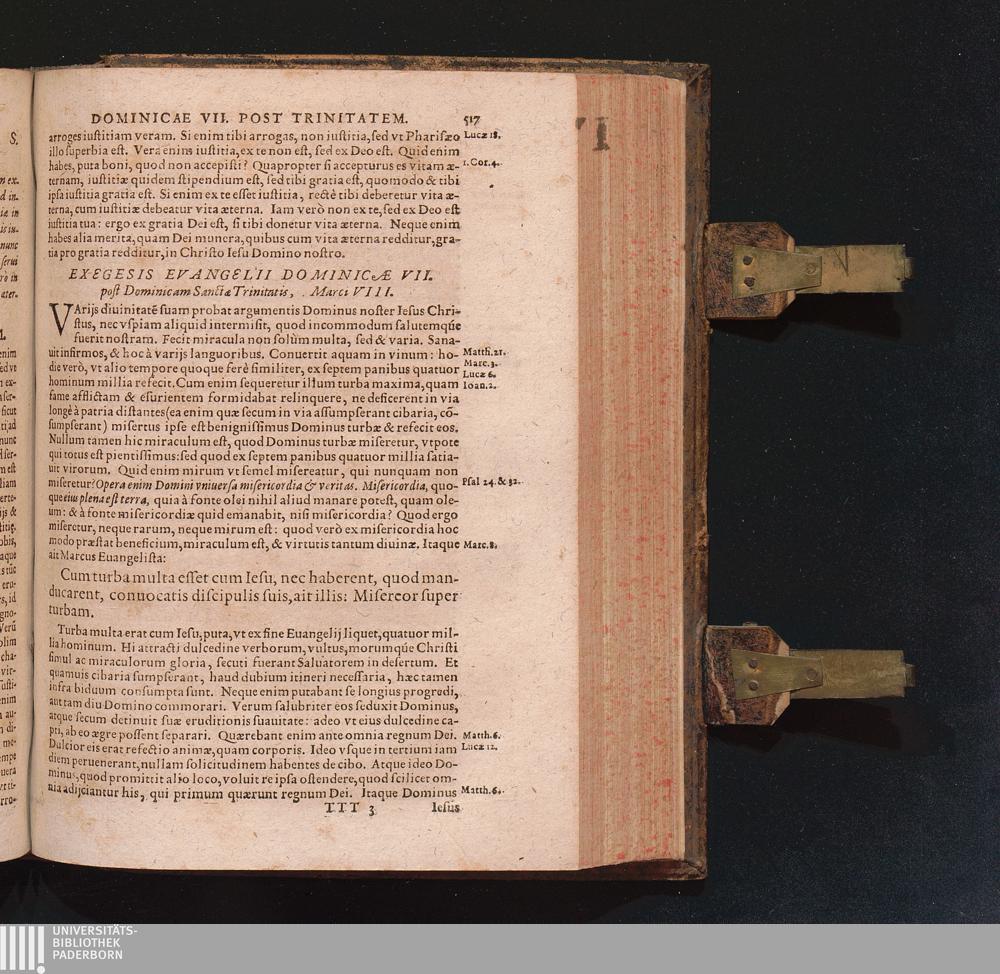 DOMINICAE VII. POST TRINITATEM. 517
arroges iuſtitiam veram. Si enim tibi arrogas, non iuſtitia, ſed vt Phariſæo
illo ſuperbia eſt. Vera enim iuſtitia, ex te non eſt, ſed ex Deo eſt. Quid enim
habes, puta boni, quod non accepiſti? Quapropter ſi accepturus es vitam æ-
ternam, iuſtitiæ quidem ſtipendium eſt, ſed tibi gratia eſt, quomodo & tibi
ipſa iuſtitia gratia eſt. Si enim ex te eſſet iuſtitia, rectè tibi deberetur vita æ-
terna, cum iuſtitiæ debeatur vita æterna. Iam verò non ex te, ſed ex Deo eſt
iuſtitia tua: ergo ex gratia Dei eſt, ſi tibi donetur vita æterna. Neque enim
habes alia merita, quam Dei munera, quibus cum vita æterna redditur, gra-
tia pro gratia redditur, in Chriſto Ieſu Domino noſtro.
Lucæ 18.
1. Cor. 4.
EXEGESIS EVANGELII DOMINICÆ VII.
poſt Dominicam Sanctæ Trinitatis, Marci VIII.
VArijs diuinitatẽ ſuam probat argumentis Dominus noſter Ieſus Chri-
ſtus, nec vſpiam aliquid intermiſit, quod incommodum ſalutemq́ue
fuerit noſtram. Fecit miracula non ſolùm multa, ſed & varia. Sana-
uit infirmos, & hoc à varijs languoribus. Conuertit aquam in vinum: ho-
die verò, vt alio tempore quoque ferè ſimiliter, ex ſeptem panibus quatuor
hominum millia refecit. Cum enim ſequeretur illum turba maxima, quam
fame afflictam & eſurientem formidabat relinquere, ne deficerent in via
longè à patria diſtantes (ea enim quæ ſecum in via aſſumpſerant cibaria, cõ-
ſumpſerant) miſertus ipſe eſt benigniſſimus Dominus turbæ & refecit eos.
Nullum tamen hic miraculum eſt, quod Dominus turbæ miſeretur, vtpote
qui totus eſt pientiſſimus: ſed quod ex ſeptem panibus quatuor millia ſatia-
uit virorum. Quid enim mirum vt ſemel miſereatur, qui nunquam non
miſeretur? Opera enim Domini vniuerſa miſericordia & veritas. Miſericordia, quo-
que eius plena eſt terra, quia à fonte olei nihil aliud manare poteſt, quam ole-
um: & à fonte miſericordiæ quid emanabit, niſi miſericordia? Quod ergo
miſeretur, neque rarum, neque mirum eſt: quod verò ex miſericordia hoc
modo præſtat beneficium, miraculum eſt, & virtutis tantum diuinæ. Itaque
ait Marcus Euangeliſta:
Matth. 21.
Marc. 3.
Lucæ 6.
Ioan. 2.
Pſal 24. & 32.
Marc. 8.
Cum turba multa eſſet cum Ieſu, nec haberent, quod man-
ducarent, conuocatis diſcipulis ſuis, ait illis: Miſereor ſuper
turbam.
Turba multa erat cum Ieſu, puta, vt ex fine Euangelij liquet, quatuor mil-
lia hominum. Hi attracti dulcedine verborum, vultus, morumq́ue Chriſti
ſimul ac miraculorum gloria, ſecuti fuerant Saluatorem in deſertum. Et
quamuis cibaria ſumpſerant, haud dubium itineri neceſſaria, hæc tamen
infra biduum conſumpta ſunt. Neque enim putabant ſe longius progredi,
aut tam diu Domino commorari. Verum ſalubriter eos ſeduxit Dominus,
atque ſecum detinuit ſuæ eruditionis ſuauitate: adeo vt eius dulcedine ca-
pti, ab eo ægre poſſent ſeparari. Quærebant enim ante omnia regnum Dei.
Dulcior eis erat refectio animæ, quam corporis. Ideo vſque in tertium iam
diem peruenerant, nullam ſolicitudinem habentes de cibo. Atque ideo Do-
minus, quod promittit alio loco, voluit re ipſa oſtendere, quod ſcilicet om-
nia adijciantur his, qui primum quærunt regnum Dei. Itaque Dominus
Matth. 6.
Lucæ 12.
Matth. 6.
TTT 3 Ieſus
UNIVERSITÄTS-
BIBLIOTHEK
PADERBORN